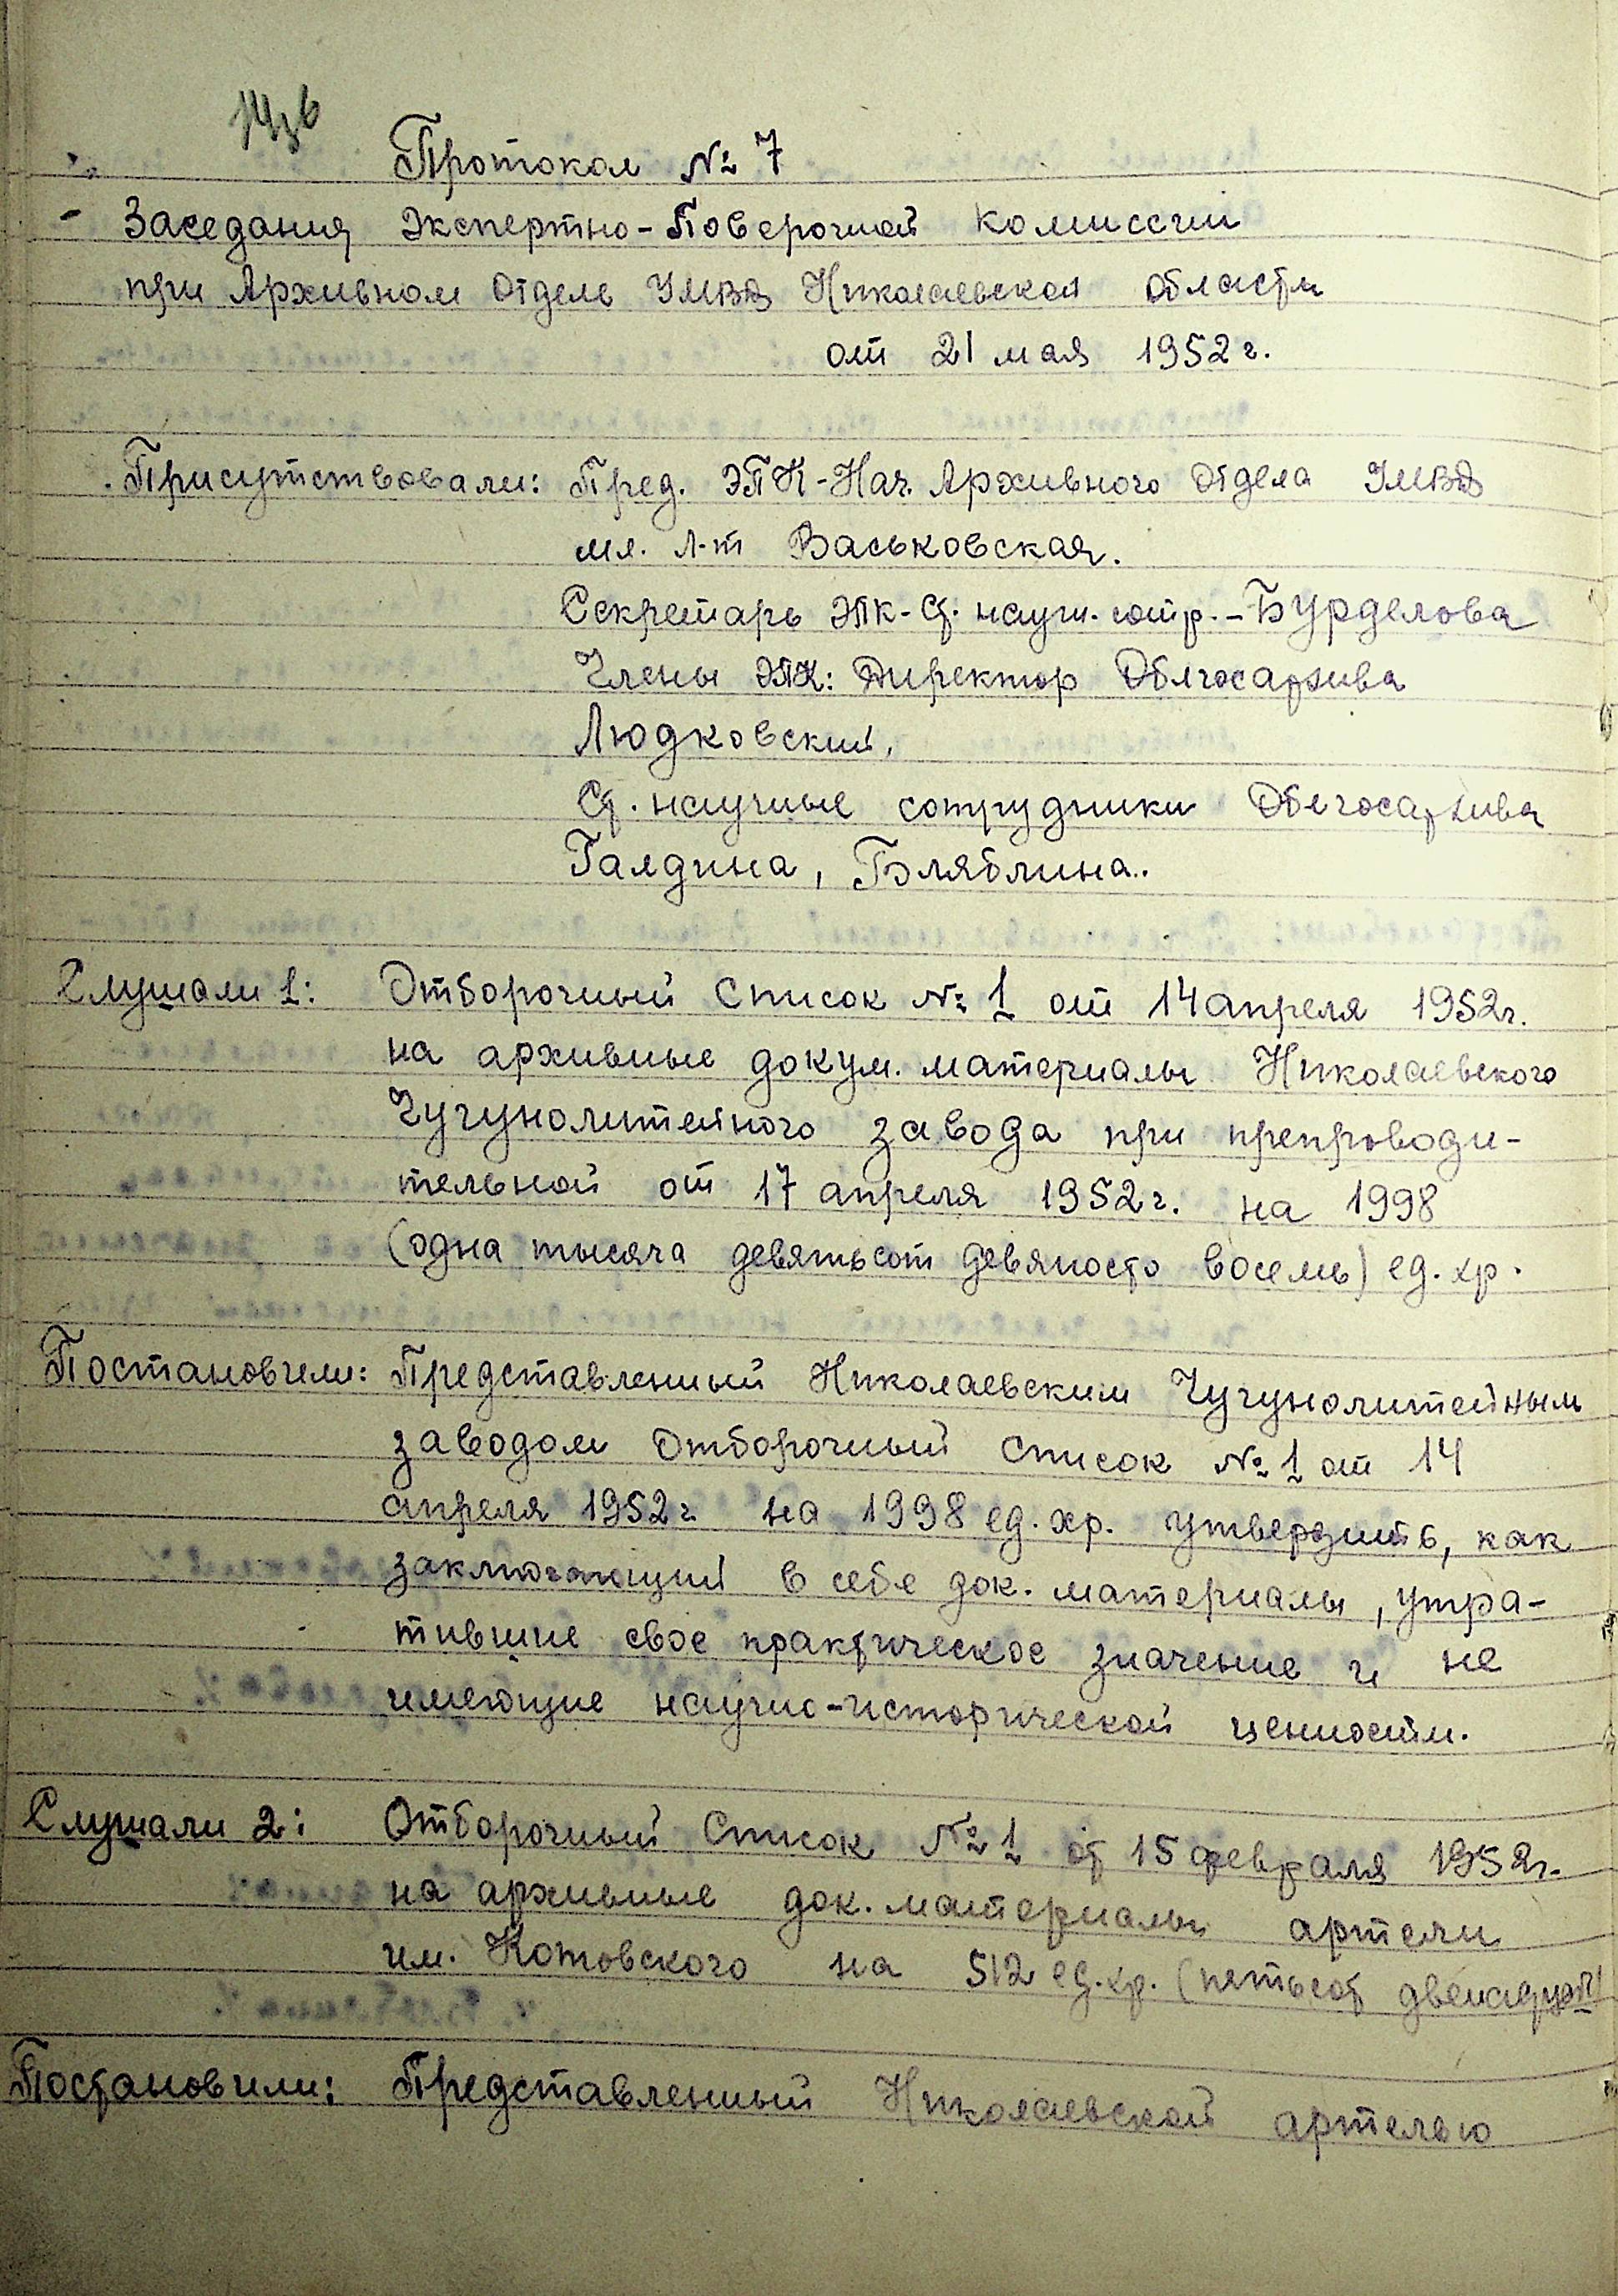 Протокол № 7
Заседания Экспертно-Поверочной комиссии
при Архивном Отделе УМВД Николаевской области
от 21 мая 1952 г.
Присутствовали: Пред. ЭПК-Нач. Архивного Отдела УМВД
мл. л-т Васьковская.
Секретарь ЭПК-ст. научн. сотр.-Бурделова
Члены ЭПК: Директор Облгосархива
Людковский,
Ст. научные сотрудники Облгосархива
Галдина, Бляблина..
Слушали 1: Отборочный список № 1 от 14 апреля 1952г.
на архивные докум. материалы Николаевского
Чугунолитейного завода при препроводи-
тельной от 17 апреля 1952г. на 1998
(одна тысяча девятьсот девяносто восемь) ед. хр.
Постановили: Представленный Николаевским Чугунолитейным
заводом Отборочный список № 1 от 14
апреля 1952г. на 1998 ед. хр. утвердить, как
заключающий в себе док. материалы, утра-
тившие свое практическое значение и не
имеющие научно-исторической ценности.
Слушали 2: Отборочный Список № 1 от 15 февраля 1952г.
на архивные док. материалы артели
им. Котовского на 512 ед.хр. (пятьсот двенадцать)
Постановили: Представленный Николаевской артелью